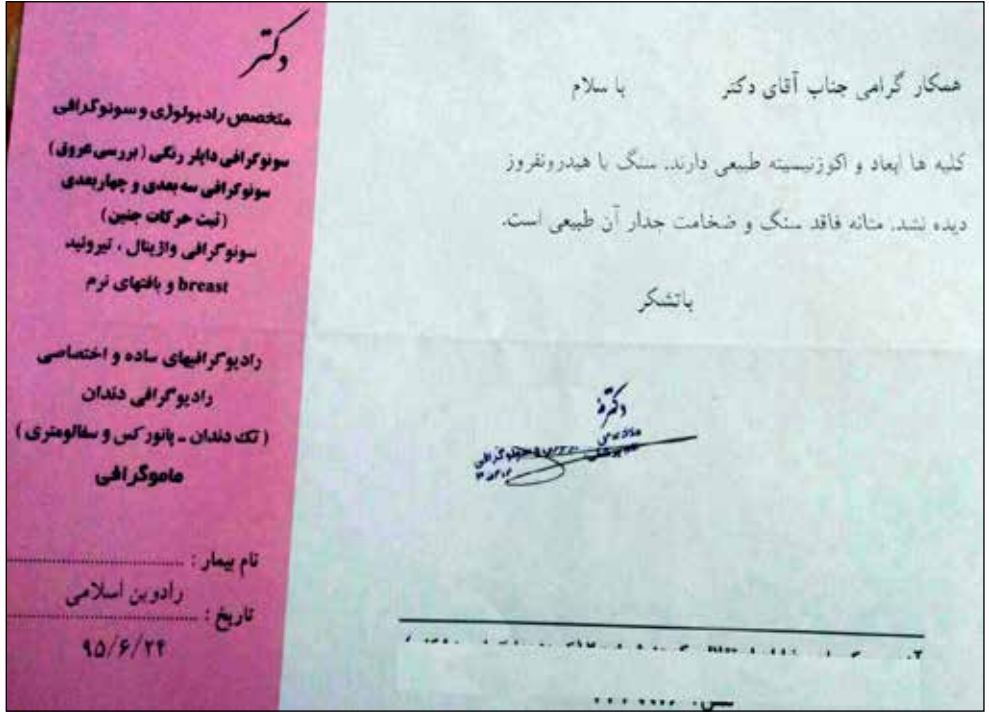 دکتر
متخصص رادیولوژی و سونوگرافی
سونوگرافی داپلر رنگی (بررسی عروق)
سونوگرافی سه بعدی و چهاربعدی
(ثبت حرکات جنین)
سونوگرافی واژینال ، تیروئید
breast و بافتهای نرم
رادیوگرافیهای ساده و اختصاصی
رادیوگرافی دندان
(تک دندان ـ پانورکس و سفالومتری)
ماموگرافی
نام بیمار :
رادوین اسلامی
تاریخ :
۹۵/۶/۲۴
همکار گرامی جناب آقای دکتر با سلام
کلیه ها ابعاد و اکوژنیسیته طبیعی دارند. سنگ یا هیدرونفروز
دیده نشد. مثانه فاقد سنگ و ضخامت جدار آن طبیعی است.
باتشکر
دکتر